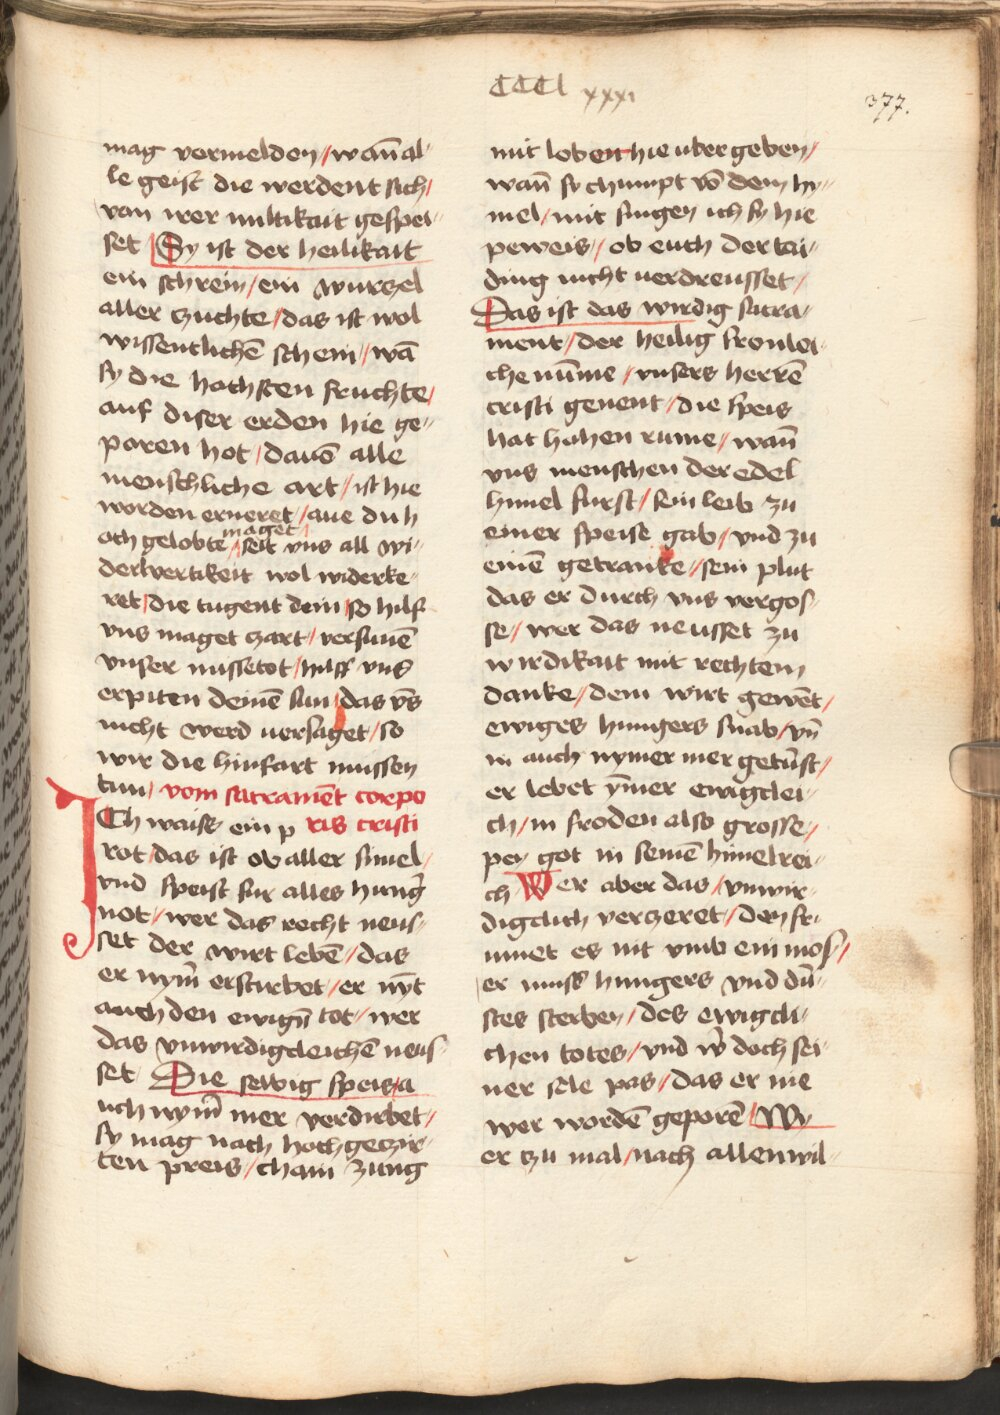 CCCl xxxı
377.
mag vermelden / wan̄ al⸗
le geist die werdent sich /
von irer miltikait gespei⸗
set Sy ist der heilikait
ein schrein / ein wurczel
aller zuchte / das ist wol
wissentlichē schein // wā
sy die hochsten fruchte /
auf diser erden hie ge⸗
poren hot / dauō alle
menschliche art / ist hie
worden erneret / aue du h
och gelobte maget / seit vns all wi⸗
derwertikeit wol widerke⸗
ret / die tugent dein / so hilf
vns maget zart / versunē
vnser missetot / hilff vns
erpiten deinē sun / das vn̄s
nicht werd uersaget / so
wir die hinfart mussen
tun / vom sacramēt corpo
ris cristi
ICh waiss ein p
rot / das ist ob aller simel /
vnd speist fur alles hunḡ
not / wer das recht neus⸗
set der wirt lebē / das
er nym̄ erstirbet / er nȳt
auch den ewign̄ tot / wer
das vnwirdigcleichē neus⸗
set Die selbig speis / a
uch nym̄ mer verdirbet /
sy mag nach hoch geczir⸗
ten preis / cham zung
mit loben hie uber geben /
wan̄ sy chumpt vō dem hy⸗
mel / mit singen ich sy hie
peweis / ob euch der tai⸗
ding nicht uerdreusset /
Das ist das wirdig sacra⸗
ment / der heilig fronlei⸗
che nūme / vnsers herrē
cristi genent / die speis
hat hohen rume / wan̄
vns menschen der edel
himel furst / sein leib zu
einer speise gab / vnd zu
einē getranke / sein plut
das er durch vns vergos⸗
se / wer das neusset zu
wirdikait mit rechtem
danke / dem wirt gewēt /
ewiges hungers snab / vn̄
in auch nymer mer getūst /
er lebet ȳmer ewigclei⸗
ch / in froden also grosse /
pey got in seinē himelrei⸗
ch Wer aber das / vnwir⸗
digclich verczeret / dem fr⸗
umet es nit vmb ein mos /
er muss hungers vnd dū⸗
stes sterben / des ewigcli⸗
chen totes / vnd w̄ doch sei⸗
ner sele pas / das er nie
wer wordē geporē / Wy⸗
er tzu mal / nach allen wil⸗